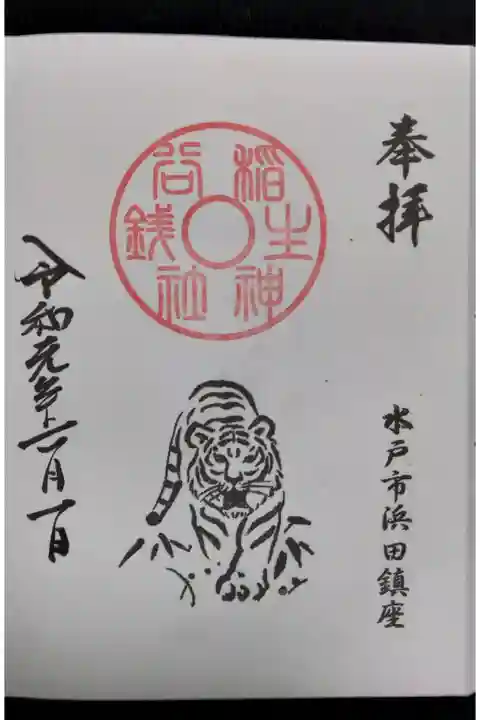 奉拝
銭谷稲生神社
水戸市浜田鎮座
令和元年 月一日